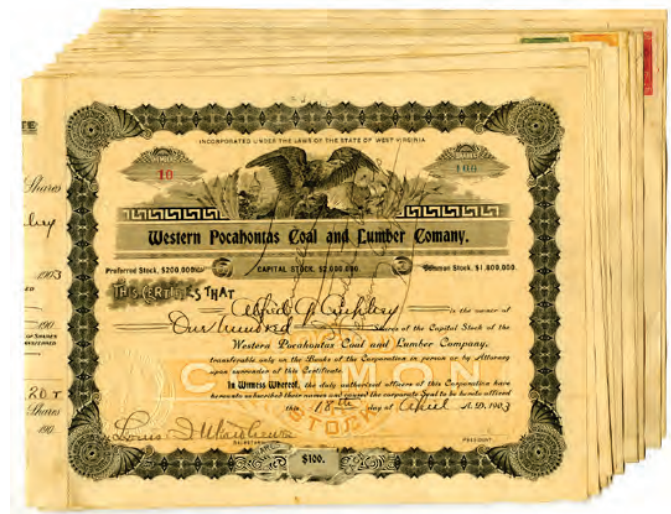 INCORPORATED UNDER THE LAWS OF THE STATE OF WEST VIRGINIA
NUMBER
10
SHARES
100
Western Pocahontas Coal and Lumber Comany.
Preferred Stock, $200,000
CAPITAL STOCK, $2,000,000.
Common Stock, $1,800,000.
THIS CERTIFIES THAT
Alfred is the owner of
One hundred Shares of the Capital Stock of the
Western Pocahontas Coal and Lumber Company,
transferable only on the Books of the Corporation in person or by Attorney
upon surrender of this Certificate.
In Witness Whereof, the duly authorized officers of this Corporation have
hereunto subscribed their names and caused the corporate Seal to be hereto affixed
this 18th day of April A.D. 1903
COMMON
STOCK
Louis
SECRETARY
PRESIDENT
$100.
Shares
1903
190
OF SHARES
Shares
190